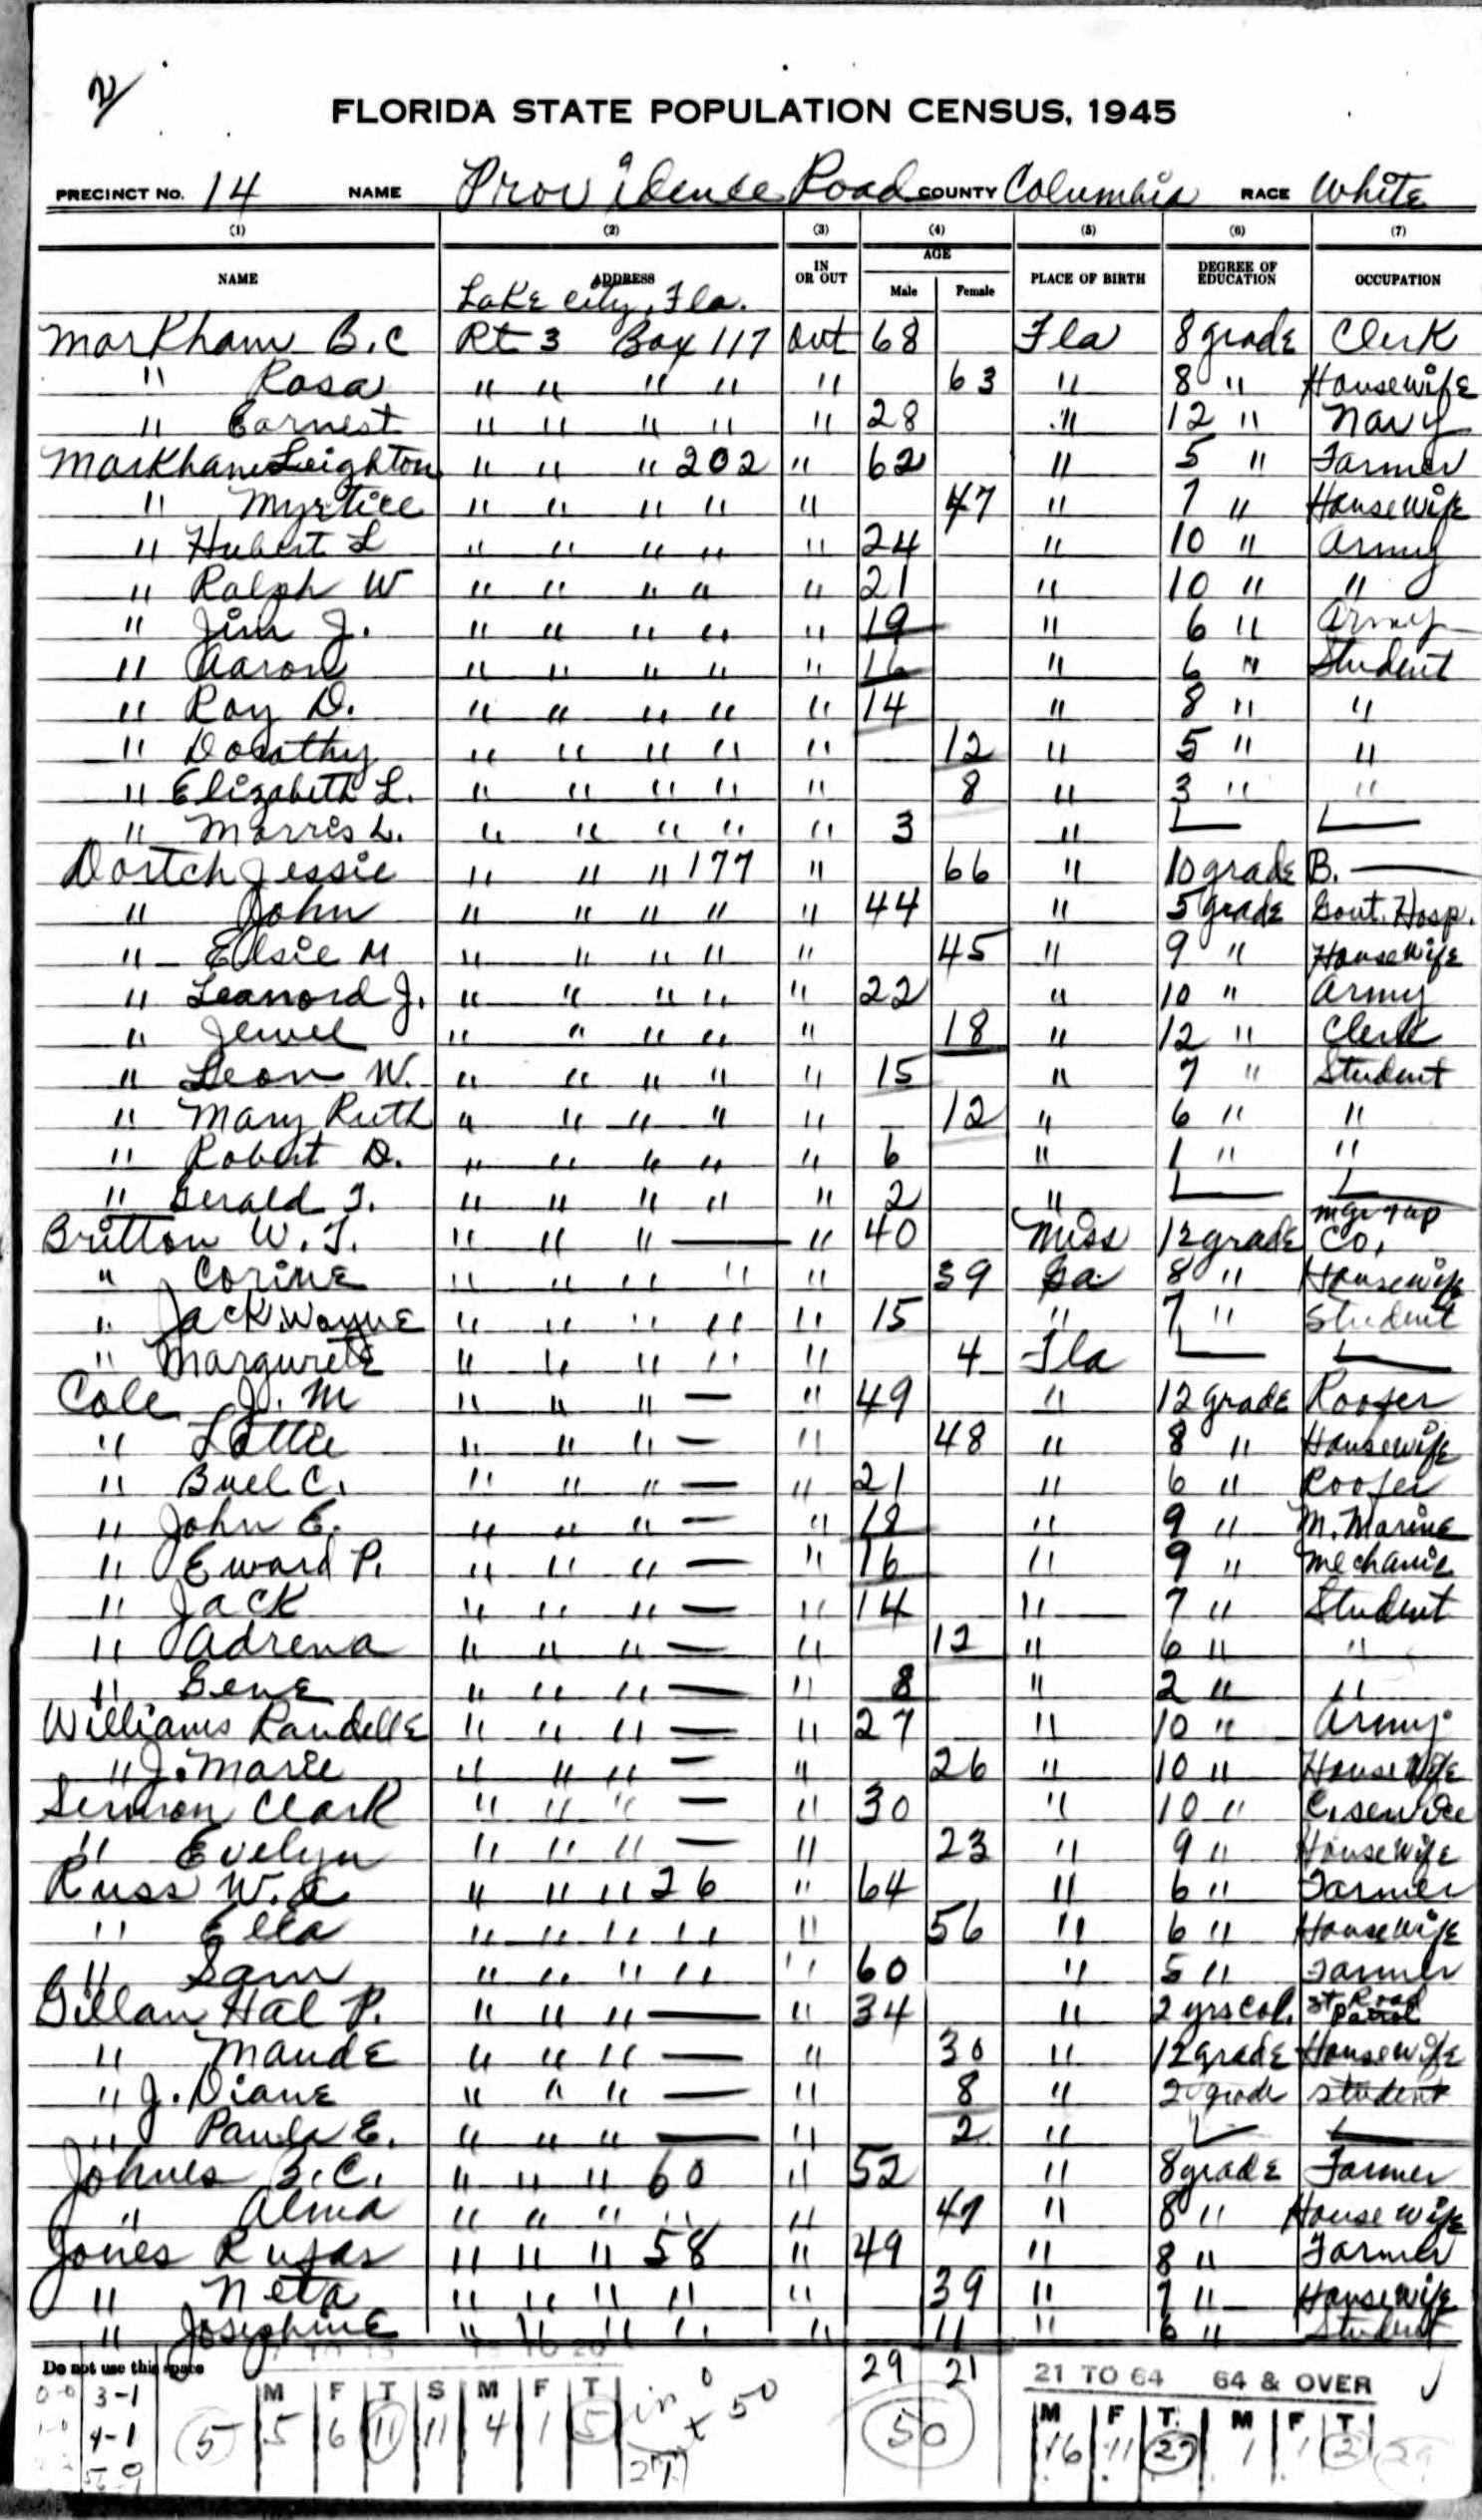 2
FLORIDA STATE POPULATION CENSUS, 1945
PRECINCT No. 14 NAME Providence Road COUNTY Columbia RACE White
(1) (2) (3) (4) (5) (6) (7)
NAME ADDRESS IN OR OUT AGE Male Female PLACE OF BIRTH DEGREE OF EDUCATION OCCUPATION
Lake City, Fla.
Markham B.C Rt 3 Box 117 Out 68 Fla 8 grade Clerk
" Rosa " " " " " 63 " 8 " Housewife
" Earnest " " " " " 28 " 12 " Navy
Markham Leighton " " " 202 " 62 " 5 " Farmer
" Myrtice " " " " " 47 " 7 " Housewife
" Hubert L " " " " " 24 " 10 " Army
" Ralph W " " " " " 21 " 10 " "
" Jim J. " " " " " 19 " 6 " Army
" Aaron " " " " " 16 " 6 " Student
" Roy D. " " " " " 14 " 8 " "
" Dorothy " " " " " 12 " 5 " "
" Elizabeth L. " " " " " 8 " 3 " "
" Morris L. " " " " " 3 "
Dortch Jessie " " " 177 " 66 " 10 grade B. —
" John " " " " " 44 " 5 grade Gout. Hosp.
" Elsie M " " " " " 45 " 9 " Housewife
" Leanord J. " " " " " 22 " 10 " Army
" Jewel " " " " " 18 " 12 " Clerk
" Leon W. " " " " " 15 " 7 " Student
" Mary Ruth " " " " " 12 " 6 " "
" Robert D. " " " " " 6 " 1 " "
" Gerald J. " " " " " 2 "
Britton W. J. " " " — " 40 Miss 12 grade mgr Co.
" Corine " " " " " 39 Ga. 8 " Housewife
" Jack Wayne " " " " " 15 " 7 " Student
" Margurete " " " " " 4 Fla
Cole J. M " " " — " 49 " 12 grade Roofer
" Lottie " " " — " 48 " 8 " Housewife
" Buel C. " " " — " 21 " 6 " Roofer
" John E. " " " — " 18 " 9 " M. Marine
" Eward P. " " " — " 16 " 9 " Mechanic
" Jack " " " — " 14 " 7 " Student
" Adrena " " " — " 12 " 6 " "
" Gene " " " — " 8 " 2 " "
Williams Randelle " " " — " 27 " 10 " Army
" J. Marie " " " — " 26 " 10 " House Wife
Clark " " " — " 30 " 10 " C. service
" Evelyn " " " — " 23 " 9 " Housewife
Russ W. " " " 26 " 64 " 6 " Farmer
" Ella " " " " " 56 " 6 " Housewife
" Sam " " " " " 60 " 5 " Farmer
Gillan Hal P. " " " — " 34 " 2 yrs Col. St. Road Patrol
" Maude " " " — " 30 " 12 grade Housewife
" J. Diane " " " — " 8 " 2 grade student
" Paula E. " " " — " 2 "
Johnes " " " 60 " 52 " 8 grade Farmer
" Alma " " " " " 47 " 8 " House wife
Jones Rufas " " " 58 " 49 " 8 " Farmer
" Neta " " " " " 39 " 7 " Housewife
" Josephine " " " " " 11 " 6 " Student
Do not use this space 29 21 21 TO 64 64 & OVER
0-0 3-1 M F T S M F T in 0 x 50 M F T M F T
4-1 5 5 6 11 11 4 1 5 50 16 11 27 1 1 2
5-0 27